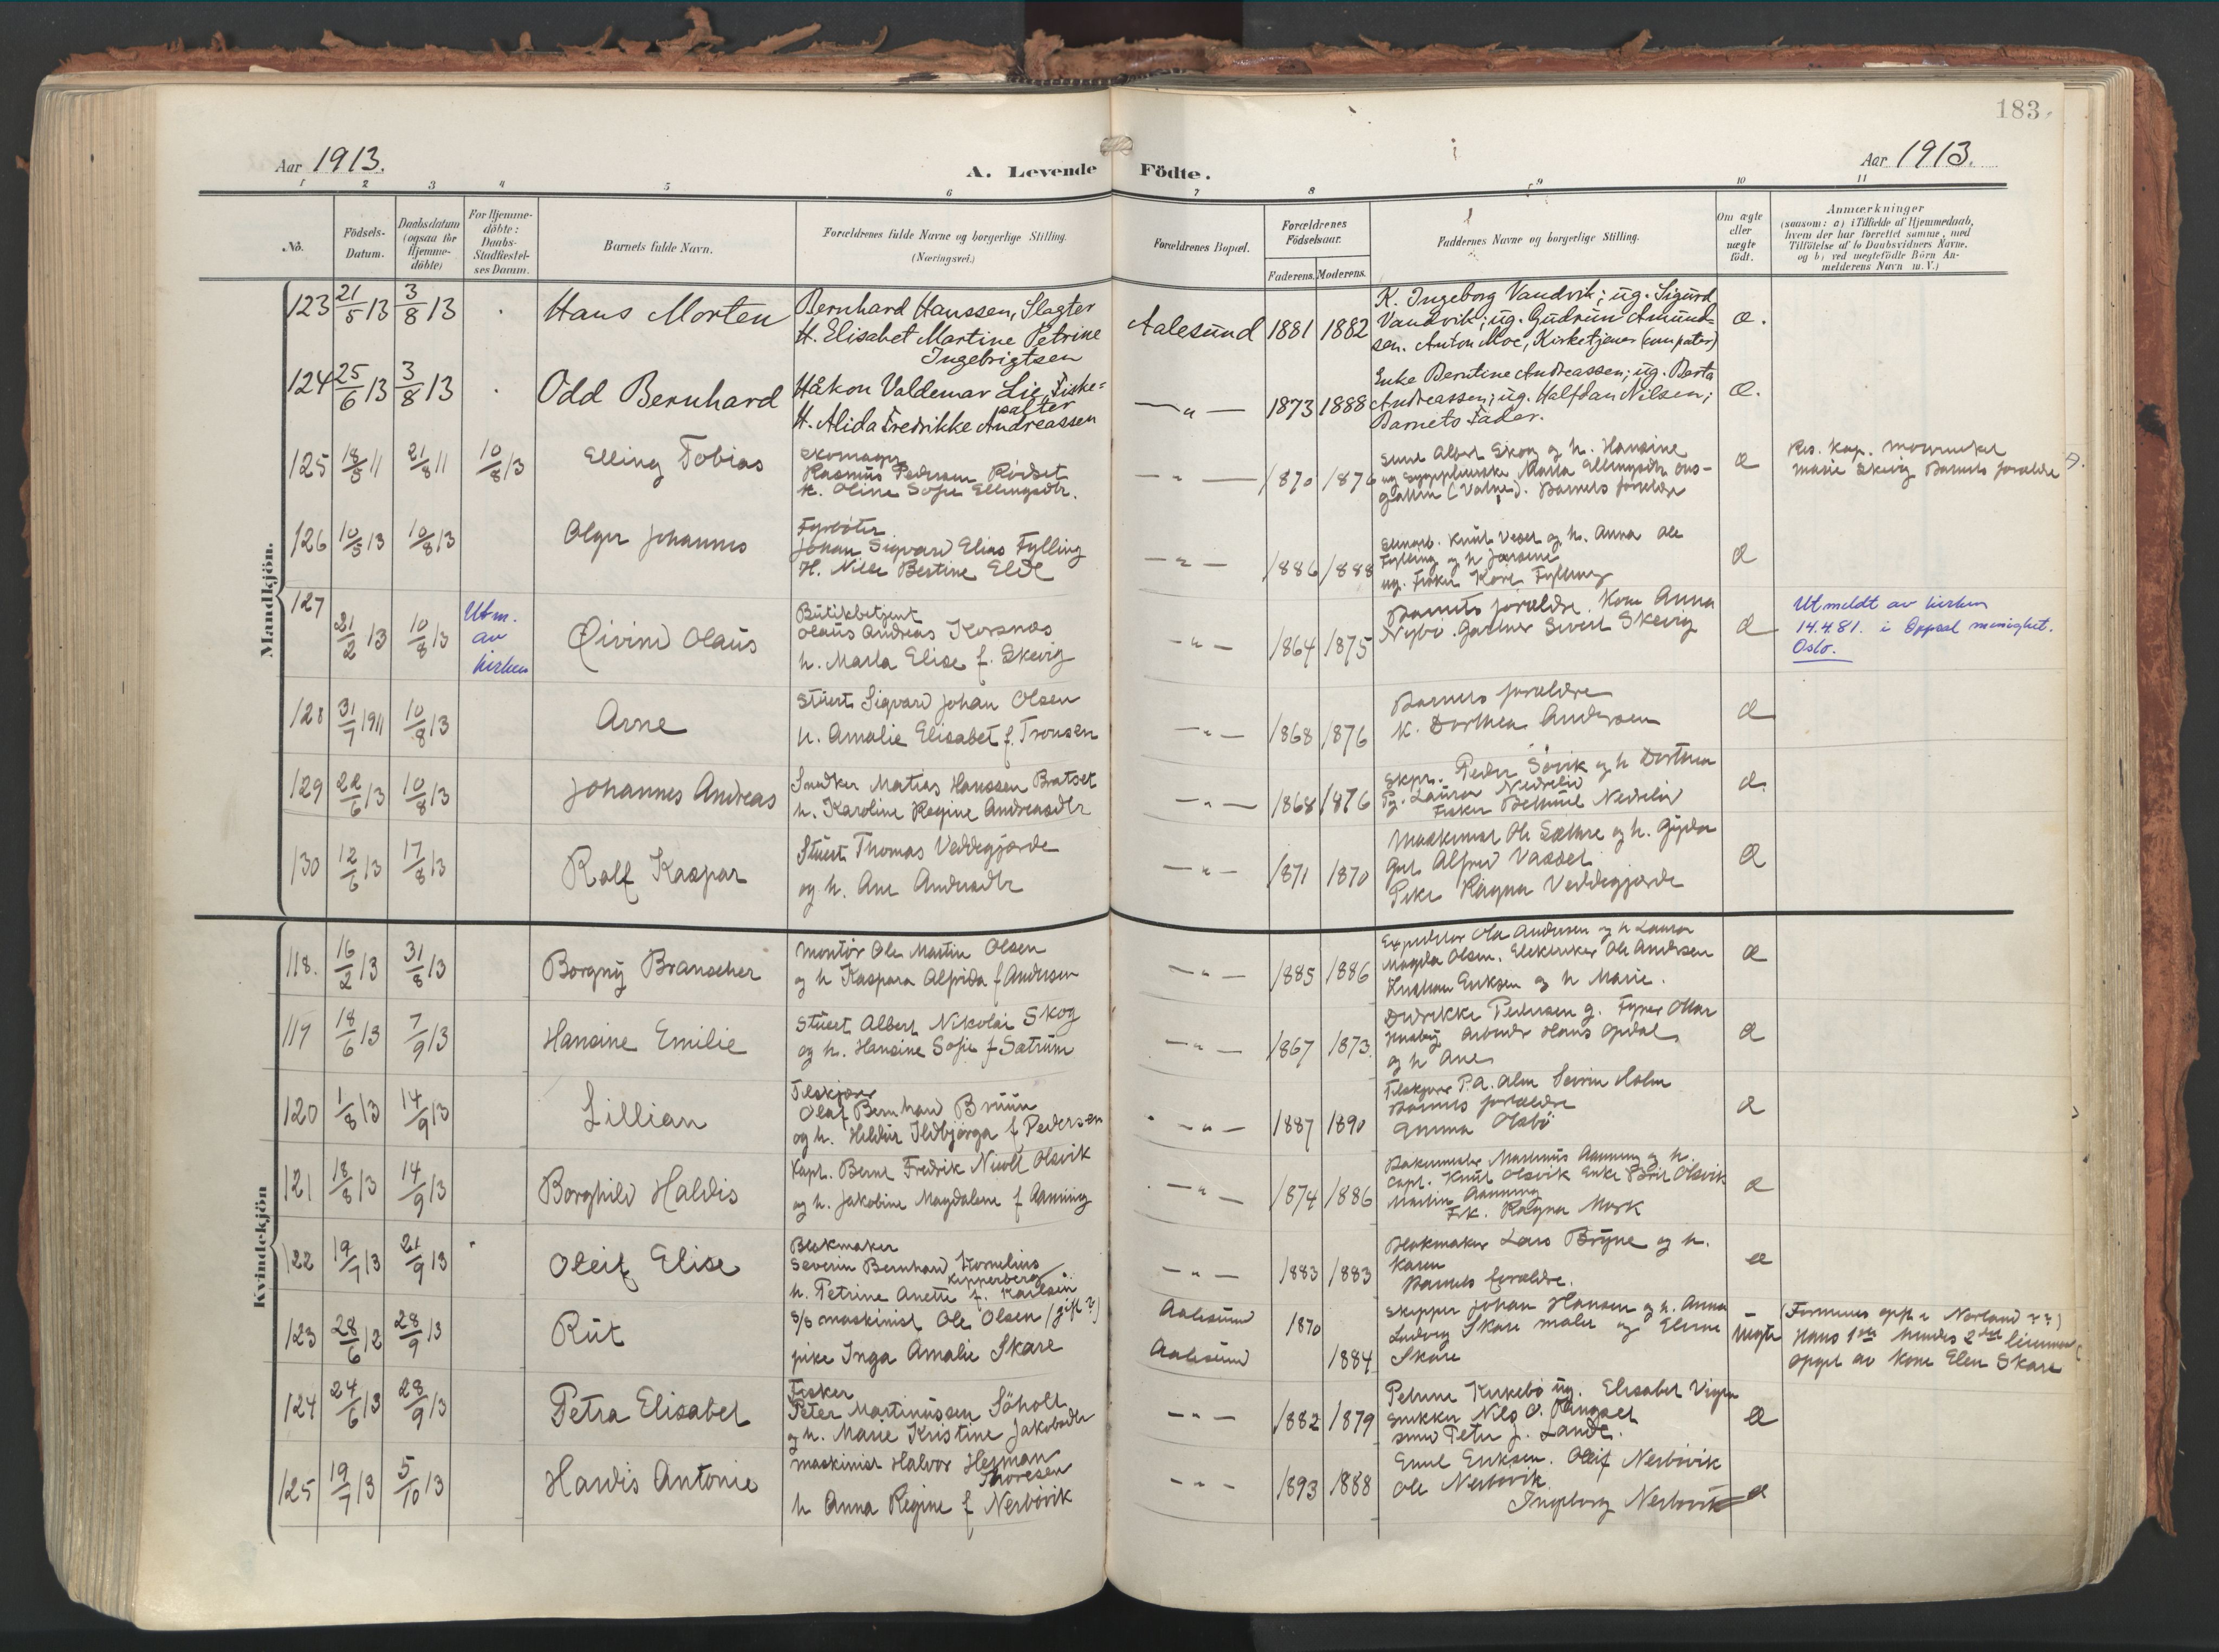 183.
Aar 1913.
A. Levende Födte.
Aar 1913.
1 2 3 4 5 6 7 8 9 10 11
No.
Födsels-
Datum.
Daabsdatum
(ogsaa for
Hjemme-
döbte)
For Hjemme-
döbte:
Daabs-
Stadfæstel-
ses Datum.
Barnets fulde Navn.
Forældrenes fulde Navne og borgerlige Stilling.
(Næringsvei.)
Forældrenes Bopæl.
Forældrenes
Födselsaar.
Faderens. Moderens.
Faddernes Navne og borgerlige Stilling.
Om ægte
eller
uægte
födt.
Anmærkninger
(saasom: a) i Tilfælde af Hjemmedaab,
hvem der har forrettet samme, med
Tilföielse af to Daabsvidners Navne,
og b) ved uægtefödte Börn An-
melderens Navn m. V.)
Mandkjön.
123 21/5 13 3/8 13 Hans Morten
Bernhard Hanssen, Slagter
H. Elisabet Martine Petrine
Ingebrigtsen
Aalesund 1881 1882
K. Ingeborg Vandvik; ug. Sigurd
Vandvik; ug. Gudrun Amund-
sen. Anton Moe, Kirketjener (compater)
æ.
124 25/6 13 3/8 13 Odd Bernhard
Håkon Valdemar Lie, Fiske-
salter
H. Alida Fredrikke Andreassen
— " — 1873 1888
Enke Berntine Andreassen; ug. Berta
Andreassen; ug. Halfdan Nilsen;
Barnets Fader.
æ.
125 18/5 11 21/8 11 10/8 13 Elling Tobias
Skomager
Rasmus Pedersen Rödset
H. Oline Sofie Ellingsdtr.
— " — 1870 1876
Albert Skog og h. Hansine
Marta Ellingsdtr.
(Vatne). Barnets forældre
æ
Res. Kap.
Marie Skevig Barnets forældre
126 10/5 13 10/8 13 Olger Johannes
Fyrböter
Johan Sigvard Elias Fylling
H. Nille Bertine Elde
— " — 1886 1888
Knut og h. Anna Ole
Fylling og h
ug. Fisker Kåre Fylling
æ
127 21/2 13 10/8 13
Utm.
av
kirken
Öivind Olaus
Butikbetjent
Olaus Andreas Korsnes
h. Marta Elise f. Skevig
— " — 1864 1875
Barnets forældre. Kone Anna
Nybö. Gartner Sivert Skevig
æ
Utmeldt av kirken
14.4.81. i Oppsal menighet.
Oslo.
128 31/7 1911 10/8 13 Arne
Stuert Sigvard Johan Olsen
h. Amalie Elisabet f. Tronsen
— " — 1868 1876
Barnets forældre
K. Dorthea Andersen
æ
129 22/6 13 10/8 13 Johannes Andreas
Snedker Matias Hanssen Bratset
h. Karoline Regine Andreasdtr
— " — 1868 1876
Peder Sövik og h Dorthea
Pg. Laura Nedrelid
Fisker Nedrelid
æ.
130 12/6 13 17/8 13 Rolf Kaspar
Stuert Thomas Veddegjærde
og h. Ane Andersdtr
— " — 1871 1870
Maskinist Ole Sæthre og h. Gyda
Alfred Vasset
Pike Ragna Veddegjærde
æ
Kvindekjön
118. 16/2 13 31/8 13 Borgny Branscher
Montör Ole Martin Olsen
og h Kaspara Alfrida f Andersen
— " — 1885 1886
Expeditör Ole Andersen og h Laura
Magda Olsen. Elektriker Ole Andersen
Kristian Eriksen og h Marie.
æ
119 18/6 13 7/9 13 Hansine Emilie
Stuert Albert Nikolai Skog
og h. Hansine Sofie f Sætrum
— " — 1867 1873.
Didrikke Pedersen g.
Arbeider Hans Opdal
og h Ane
æ
120 1/8 13 14/9 13 Lillian
Tilskjærer
Olaf Bernhard Bruun
og h. Hildur Ildbjørga f Pedersen
— " — 1887 1890
Tilskjærer P.A. Alm Severin Holm
Barnets forældre
Emma Olsbö
æ
121 18/8 13 14/9 13 Borghild Haldis
Kapt. Bernt Fredrik Nicoll Olsvik
og h. Jakobine Magdalene f Aanning
— " — 1874 1886
Bakermester Martinus Aanning og h.
Capt. Knut Olsvik Enke Brit Olsvik
Martin Aanning
Frk. Ragna Mork
æ
122 19/7 13 21/9 13 Oleif Elise
Blokmaker
Severin Bernhard Kornelius
Kipperberg
h. Petrine Anette f. Karlsen
— " — 1883 1883
Blokmaker Lars Bryne og h.
Karen
Barnets forældre.
æ
123 28/6 12 28/9 13 Rut
S/S maskinist Ole Olsen (gift?)
pike Inga Amalie Skare
Aalesund 1870
Aalesund 1884
Skipper Johan Hansen og h. Anna
Ludvig Skare maler og Elene
Skare
uægte
Hans 1ste hendes 2det
opgit av kone Elen Skare
124 24/6 13 28/9 13 Petra Elisabet
Fisker
Peter Martinussen Söholt
og h. Marie Kristine Jakobsdtr
— " — 1882 1879
Petrine Kirkebö ug. Elisabet Vigra
Snekker Nils O.
Peter J. Lande.
æ
125 19/7 13 5/10 13 Hardis Antonie
Maskinist Halvor Herman
Thoresen
h Anna Regine f Nerbövik
— " — 1893 1888
Emil Eriksen. Oleif Nerbövik
Ole Nerbövik
Ingeborg Nerbövik
æ